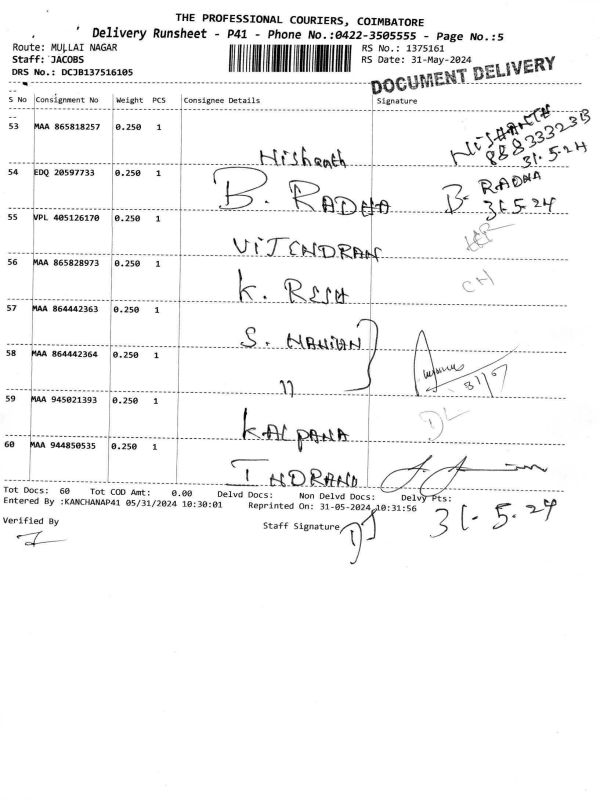 THE PROFESSIONAL COURIERS, COIMBATORE
Delivery Runsheet - P41 - Phone No.:0422-3505555 - Page No.:5
Route: MULLAI NAGAR RS No.: 1375161
Staff: JACOBS RS Date: 31-May-2024
DRS No.: DCJB137516105 DOCUMENT DELIVERY
S No Consignment No Weight PCS Consignee Details Signature
53 MAA 865818257 0.250 1 Nishanth NISHANTH
31.5.24
54 EDQ 20597733 0.250 1 B. RADHA B. RADHA
31.5.24
55 VPL 405126170 0.250 1
56 MAA 865828973 0.250 1 K.
57 MAA 864442363 0.250 1 S.
58 MAA 864442364 0.250 1 11
59 MAA 945021393 0.250 1 KALPANA
60 MAA 944850535 0.250 1
Tot Docs: 60 Tot COD Amt: 0.00 Delvd Docs: Non Delvd Docs: Delvy Pts:
Entered By :KANCHANAP41 05/31/2024 10:30:01 Reprinted On: 31-05-2024 10:31:56
Verified By Staff Signature 31.5.24